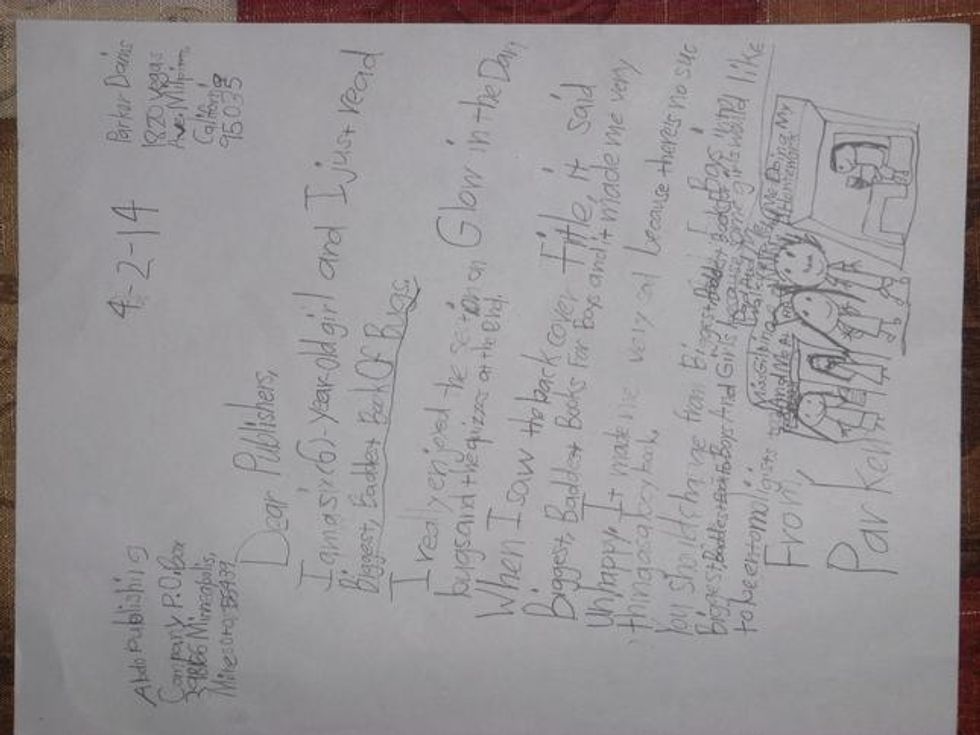 Parker Dains
1820 Yogas
Ave. Milpitas,
California
95035
4-2-14
Abdo Publishing
Company P.O. Box
398166 Minneapolis,
Minnesota, 55439
Dear Publishers,
I am a six (6)-year-old girl and I just read
Biggest, Baddest Book Of Bugs.
I really enjoyed the section on Glow in the Dark
bugs and the quizzes at the end.
When I saw the back cover title, it said
Biggest, Baddest Books For Boys and it made me very
unhappy. It made me very sad because there's no such
thing as a boy book.
You should change from Biggest, Baddest Books For Boys into
Biggest, Baddest Books For Boys And Girls because some girls would like
to be entomologists too
Me Doing My
Homework
From,
Parker